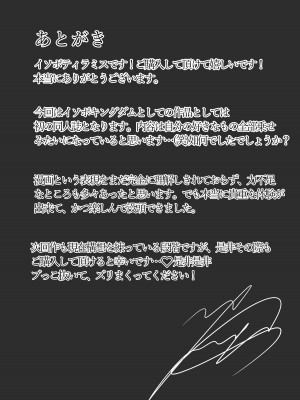 あとがき
イソボティラミスです！ご購入して頂けて嬉しいです！
本当にありがとうございます。
今回はイソボキングダムとしての作品としては
初の同人誌となります。内容は自分の好きなもの全部乗せ
みたいになっていると思います…(笑)如何でしたでしょうか？
漫画という表現をまだ完全に理解しきれておらず、力不足
なところも多々あったと思います。でも本当に貴重な体験が
出来て、かつ楽しんで制作できました。
次回作も現在構想を練っている段階ですが、是非その際も
ご購入して頂けると幸いです…♡是非是非
ブっこ抜いて、ズリまくってください！